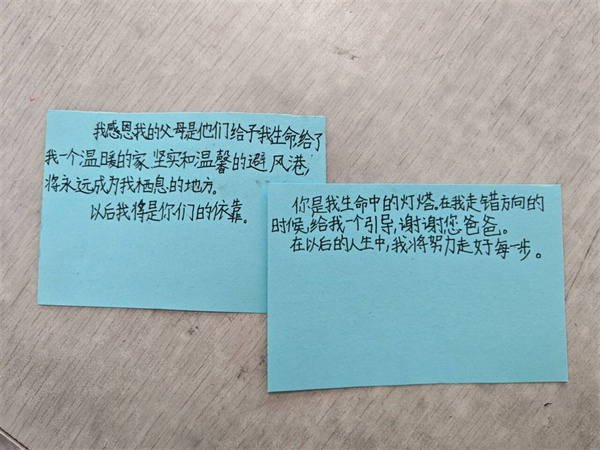 我感恩我的父母是他们给予我生命给了
我一个温暖的家,坚实和温馨的避风港,
将永远成为我栖息的地方。
以后我将是你们的依靠。
你是我生命中的灯塔。在我走错方向的
时候,给我一个引导,谢谢您爸爸。
在以后的人生中,我将努力走好每一步。